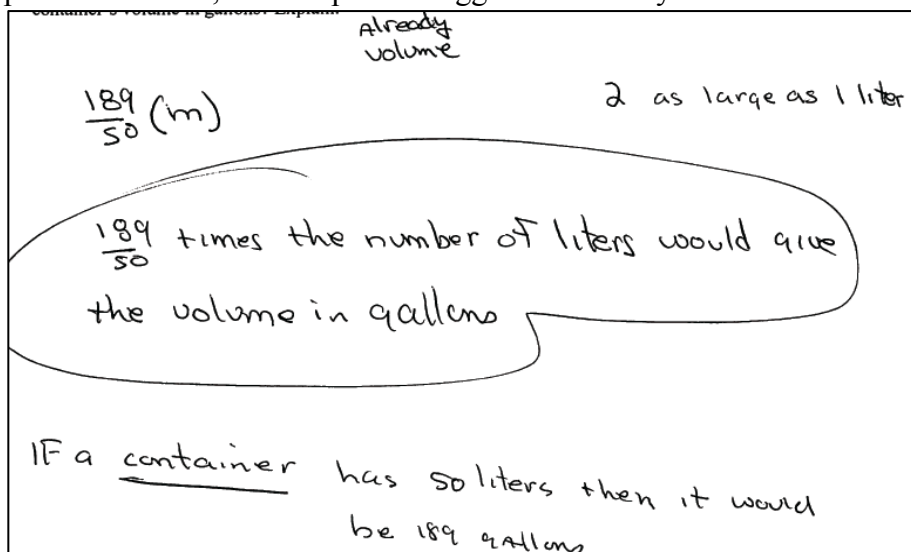 Already
volume
189/50 (m)
2 as large as 1 liter
189/50 times the number of liters would give
the volume in gallons
IF a container has 50 liters then it would
be 189 gallons